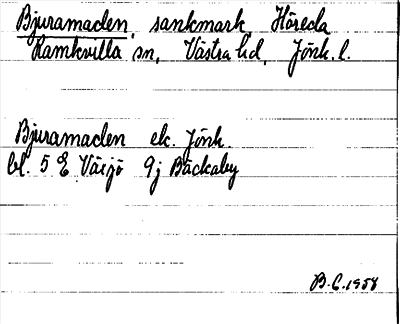 Bjuramaden, sankmark, Höreda
Ramkvilla sn, Västra hd, Jönk. l.
Bjuramaden ek. Jönk.
bl. 5 E Växjö 9j Bäckaby
B.C. 1958